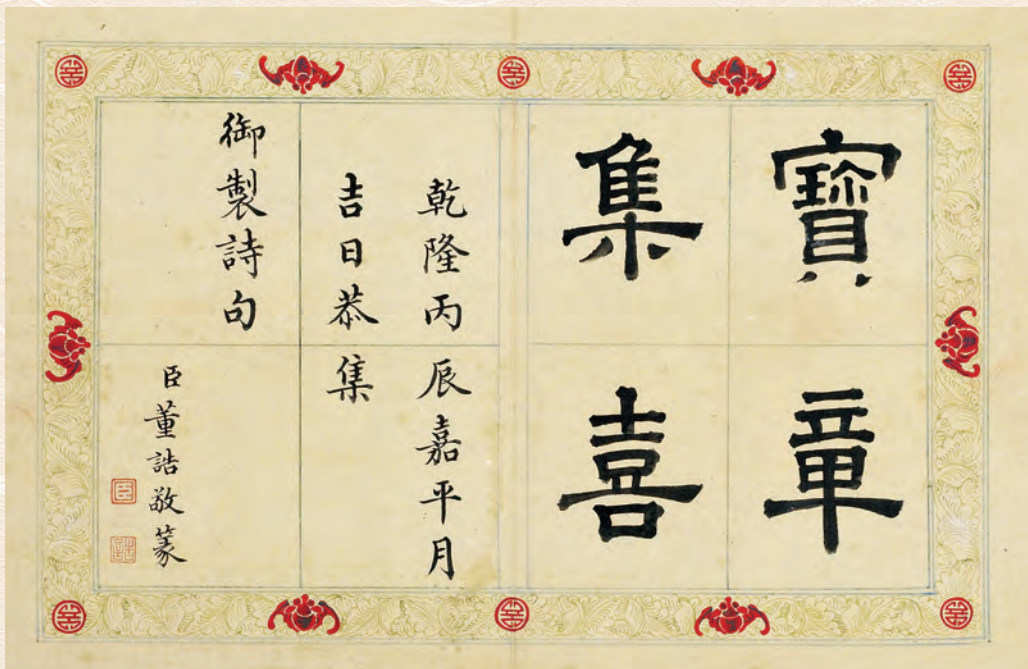 寶章
集喜
乾隆丙辰嘉平月
吉日恭集
御製詩句
臣董誥敬篆